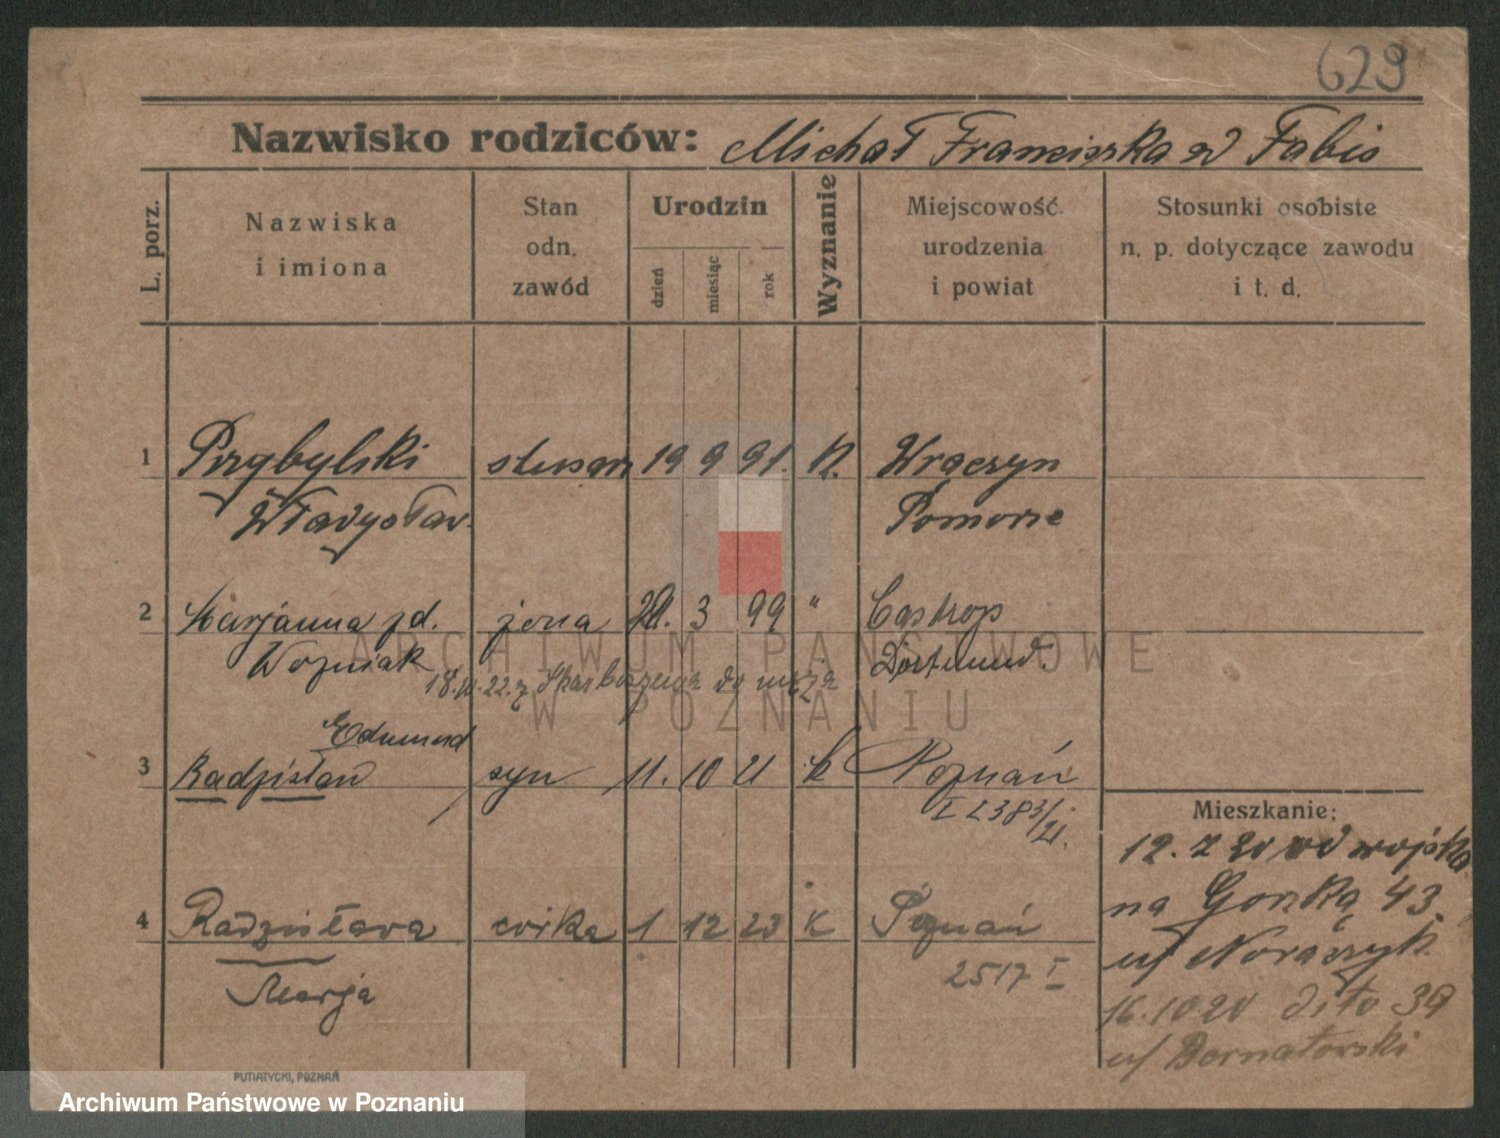 629
Nazwisko rodziców: Michał Franciszka z d Fabiś
L. porz.
Nazwiska
i imiona
Stan
odn.
zawód
Urodzin
dzień
miesiąc
rok
Wyznanie
Miejscowość
urodzenia
i powiat
Stosunki osobiste
n. p. dotyczące zawodu
i t. d.
1 Przybylski ślusarz 19 9 91. K.
Władysław
Pomorze
2 Marjanna zd. żona 3 99 " Castrop
Woźniak Dortmund.
18. 22. z do męża
Edmund
3 Radzisław syn 11. 10 21 k Poznań
I 2383/21.
Mieszkanie:
12. 2 20 od wojska
na Górską 43.
4 Radzisława córka 1 12 23 K Poznań
u/
2517 I
Marja
16.10 20 dito 39
u/ Bernatowski
PUTIATYCKI, POZNAŃ
ARCHIWUM PAŃSTWOWE
W POZNANIU
Archiwum Państwowe w Poznaniu